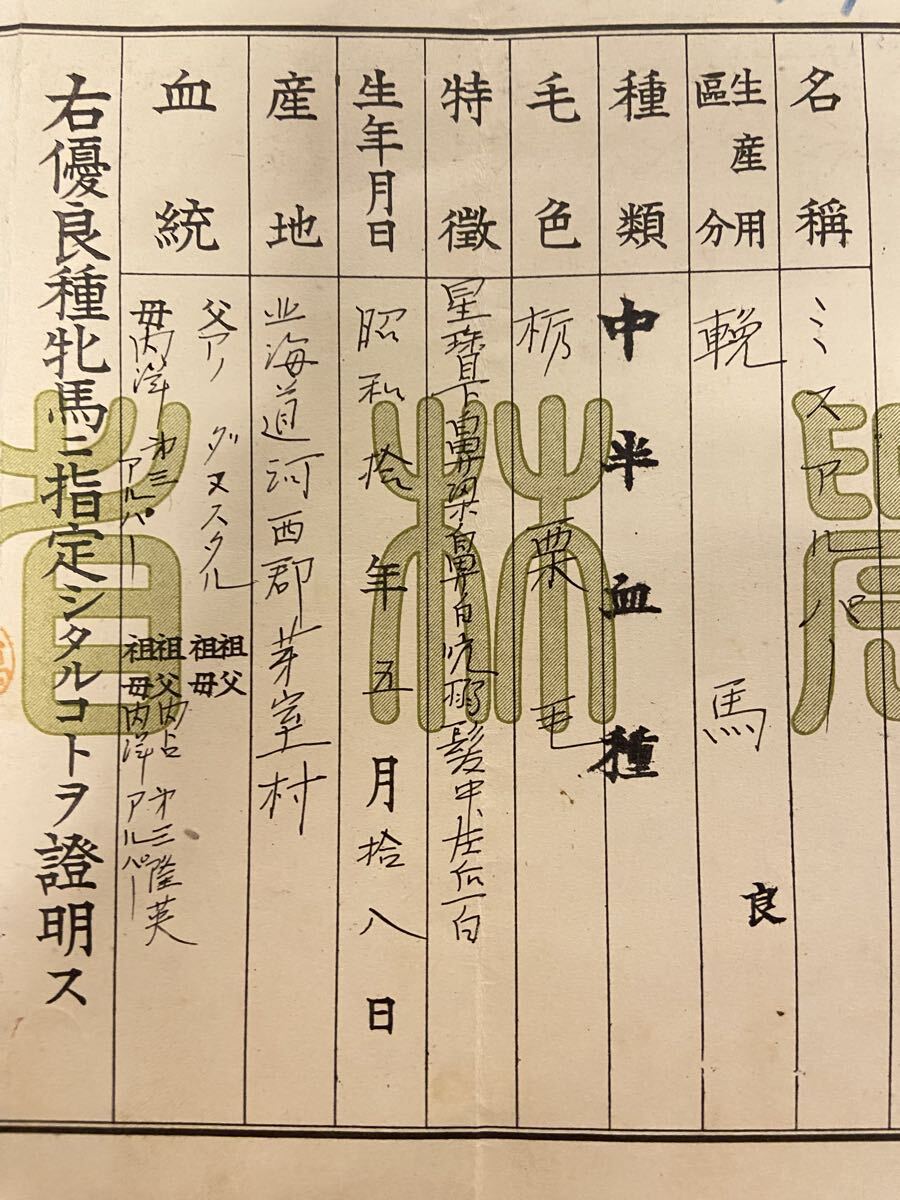 名稱 ミスアルパー
生産用區分 輓馬 良
種類 中半血種
毛色 栃栗毛
特徴 星 下鼻梁鼻白 髪中 左后一白
生年月日 昭和拾五年五月拾八日
産地 北海道河西郡芽室村
血統 父 アノ ダヌスタル 祖父 祖母
母 内洋 第三アルパー 祖父 内占 第三隆英 祖母 内洋 アルパー
右優良種牝馬ニ指定シタルコトヲ證明ス
農林省